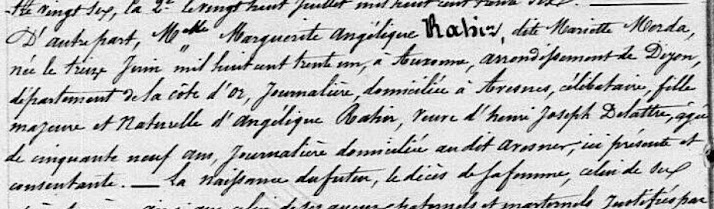 vingt six, la 2e le vingt huit juillet mil huit cent trente six.
D'autre part, Melle Marguerite Angélique Rahir, dite Mariette Merda,
née le treize Juin mil huit cent trente un, à Auxonne, arrondissement de Dijon,
département de la côte d'or, Journalière, domiciliée à Avesnes, célibataire, fille
majeure et Naturelle d'Angélique Rahir, Veuve d'henri Joseph Delattre, âgée
de cinquante neuf ans, Journalière domiciliée audit avesnes, ici présente et
consentante. — La naissance du futur, le décès de sa femme, celui de ses
que celui de ses ayeux paternels et maternels justifiés par